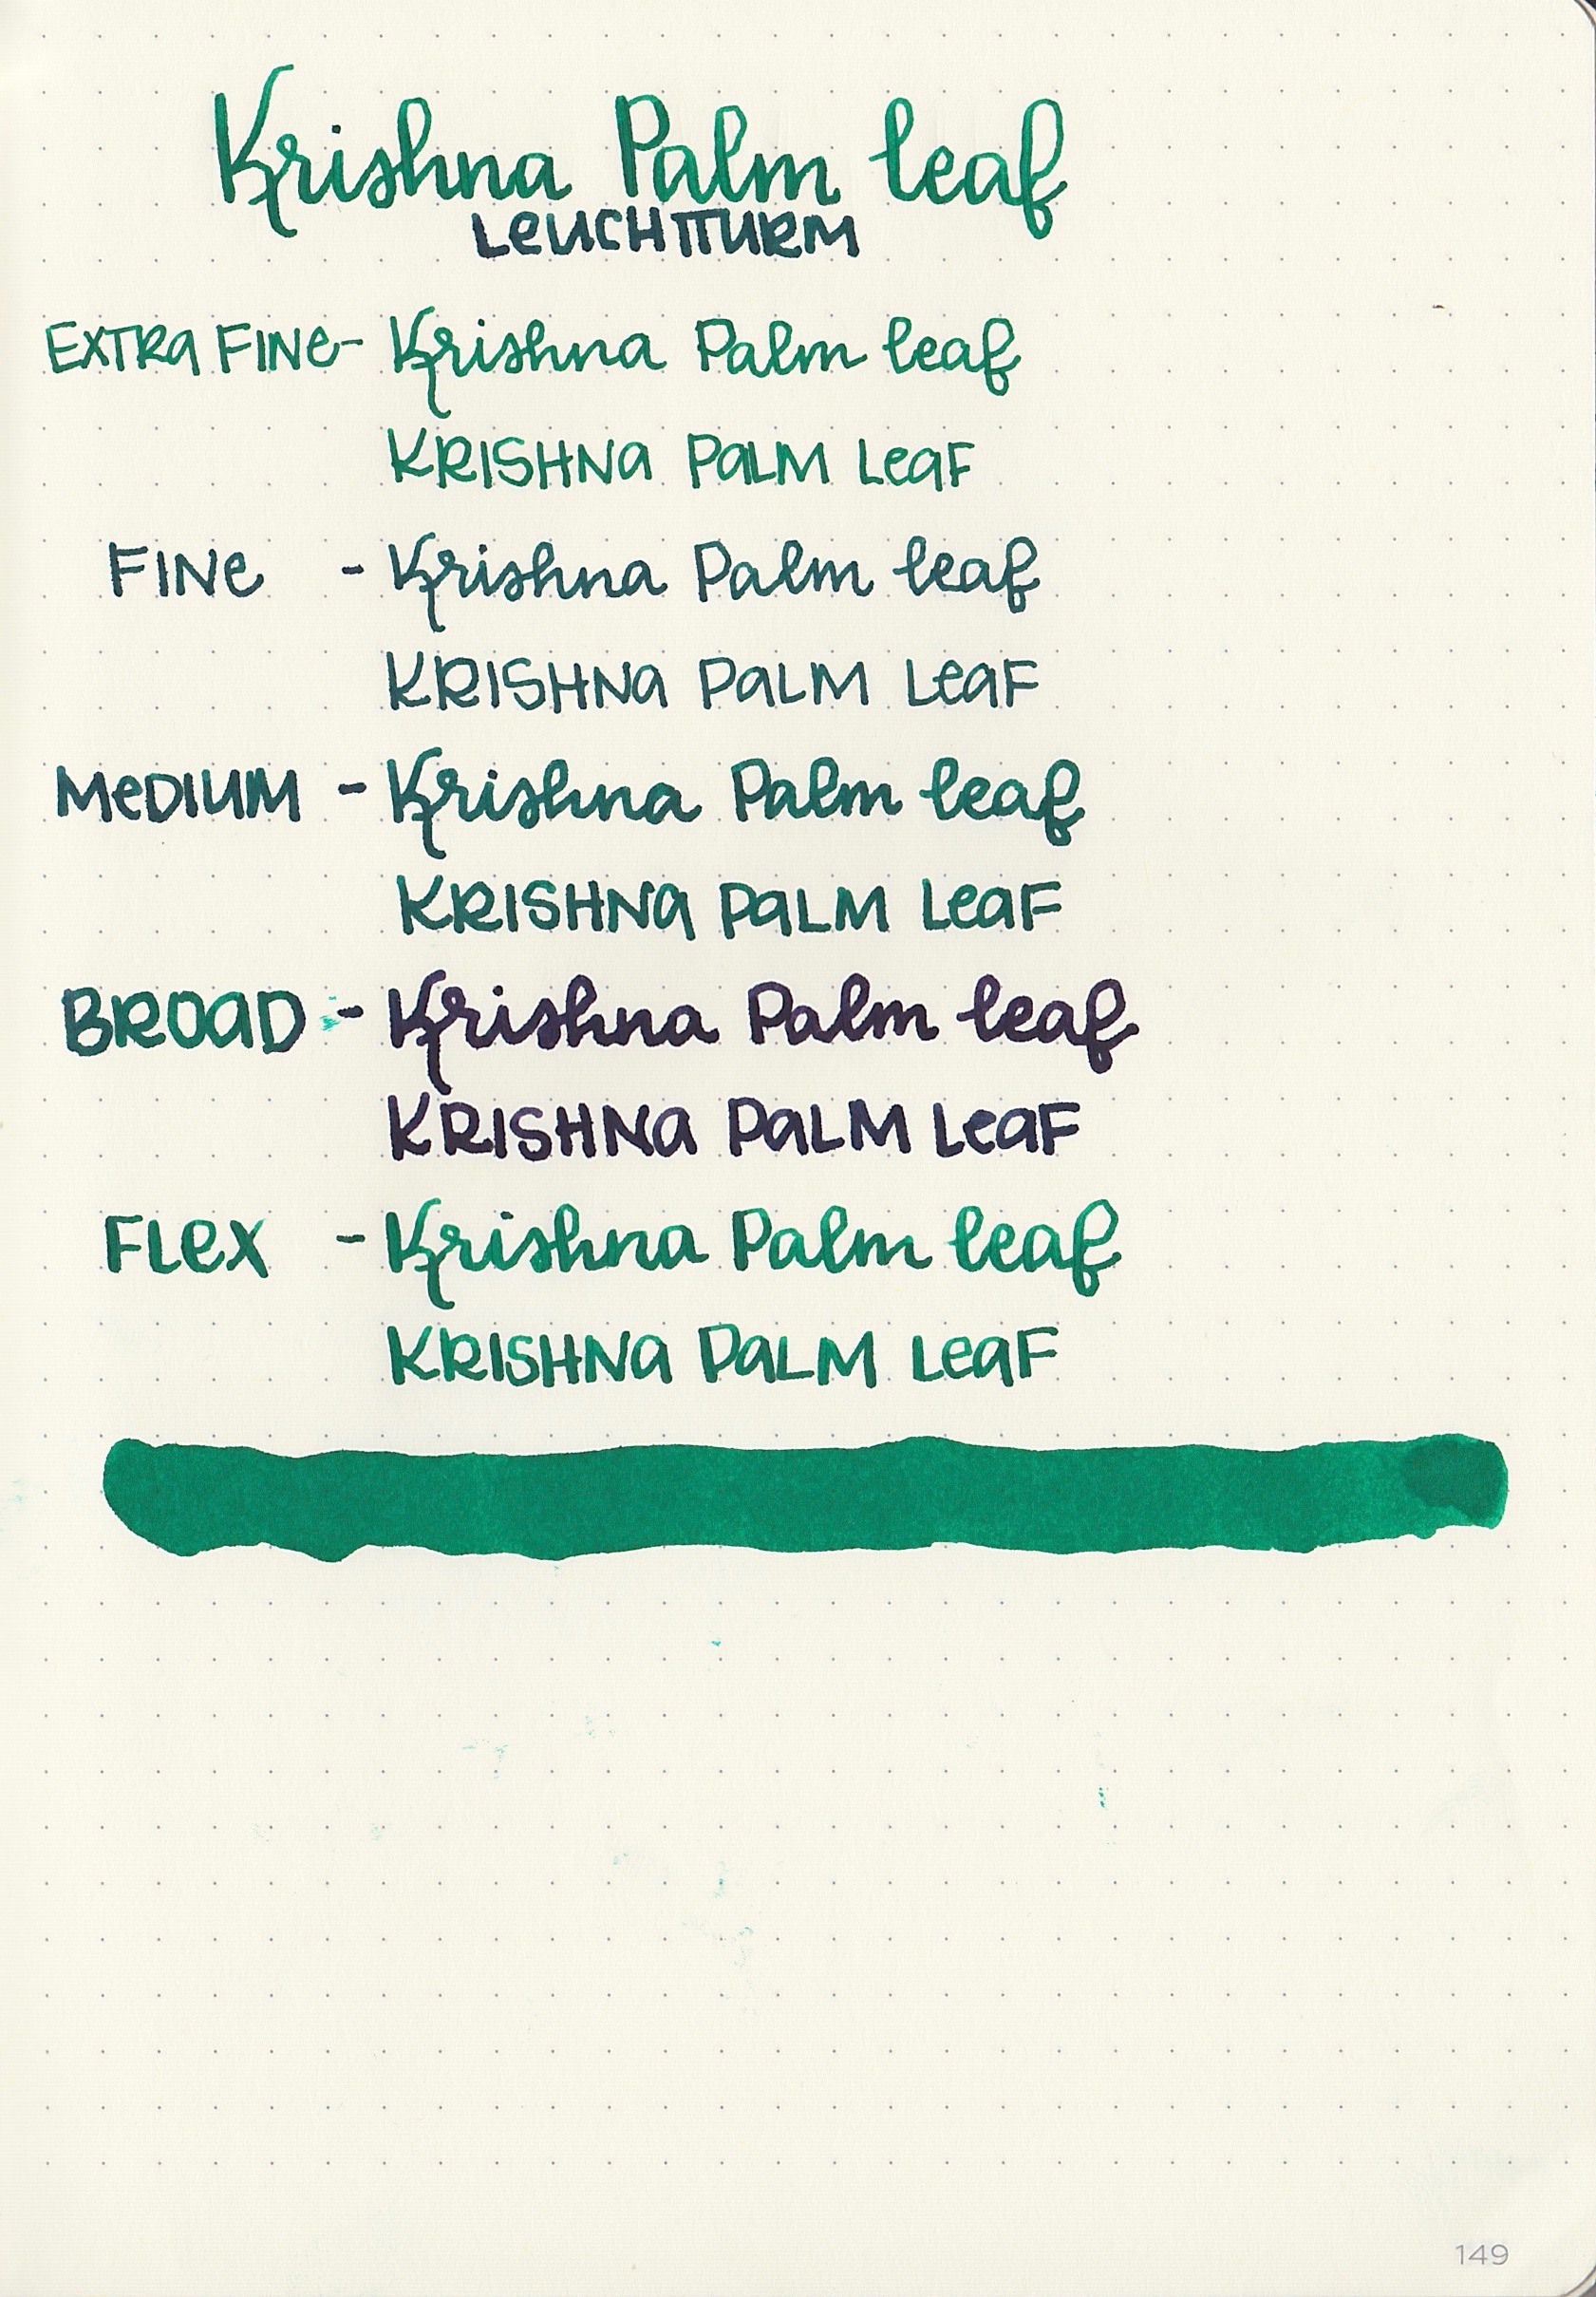 Krishna Palm leaf
LeUCHTTURM
EXTRa FINe- Krishna Palm leaf
KRISHNa PaLM LeaF
FINe - Krishna Palm leaf
KRISHNa PaLM LeaF
MeDIUM - Krishna Palm leaf
KRISHNa PaLM LeaF
BROaD - Krishna Palm leaf
KRISHNa PaLM LeaF
FLeX - Krishna Palm leaf
KRISHNa PaLM LeaF
149